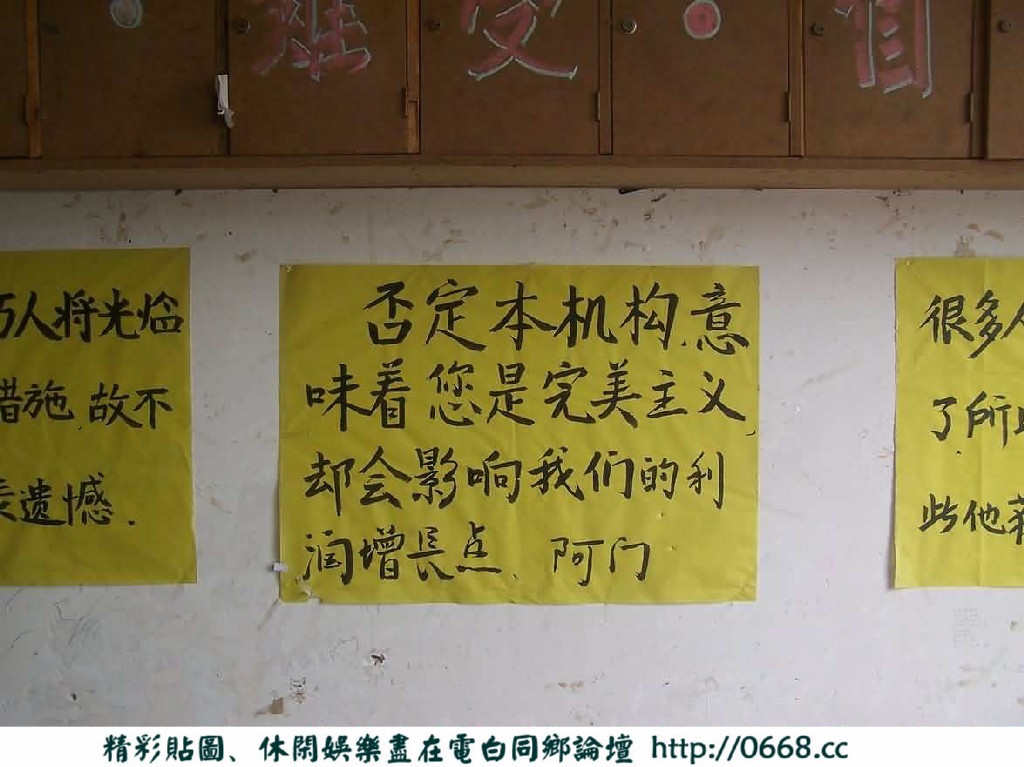 难受 自
人将光临
措施.故不
遗憾.
否定本机构.意
味着您是完美主义,
却会影响我们的利
润增长点. 阿门
很多人
了所以
些他
精彩貼圖、休閑娛樂盡在電白同鄉論壇 http://0668.cc